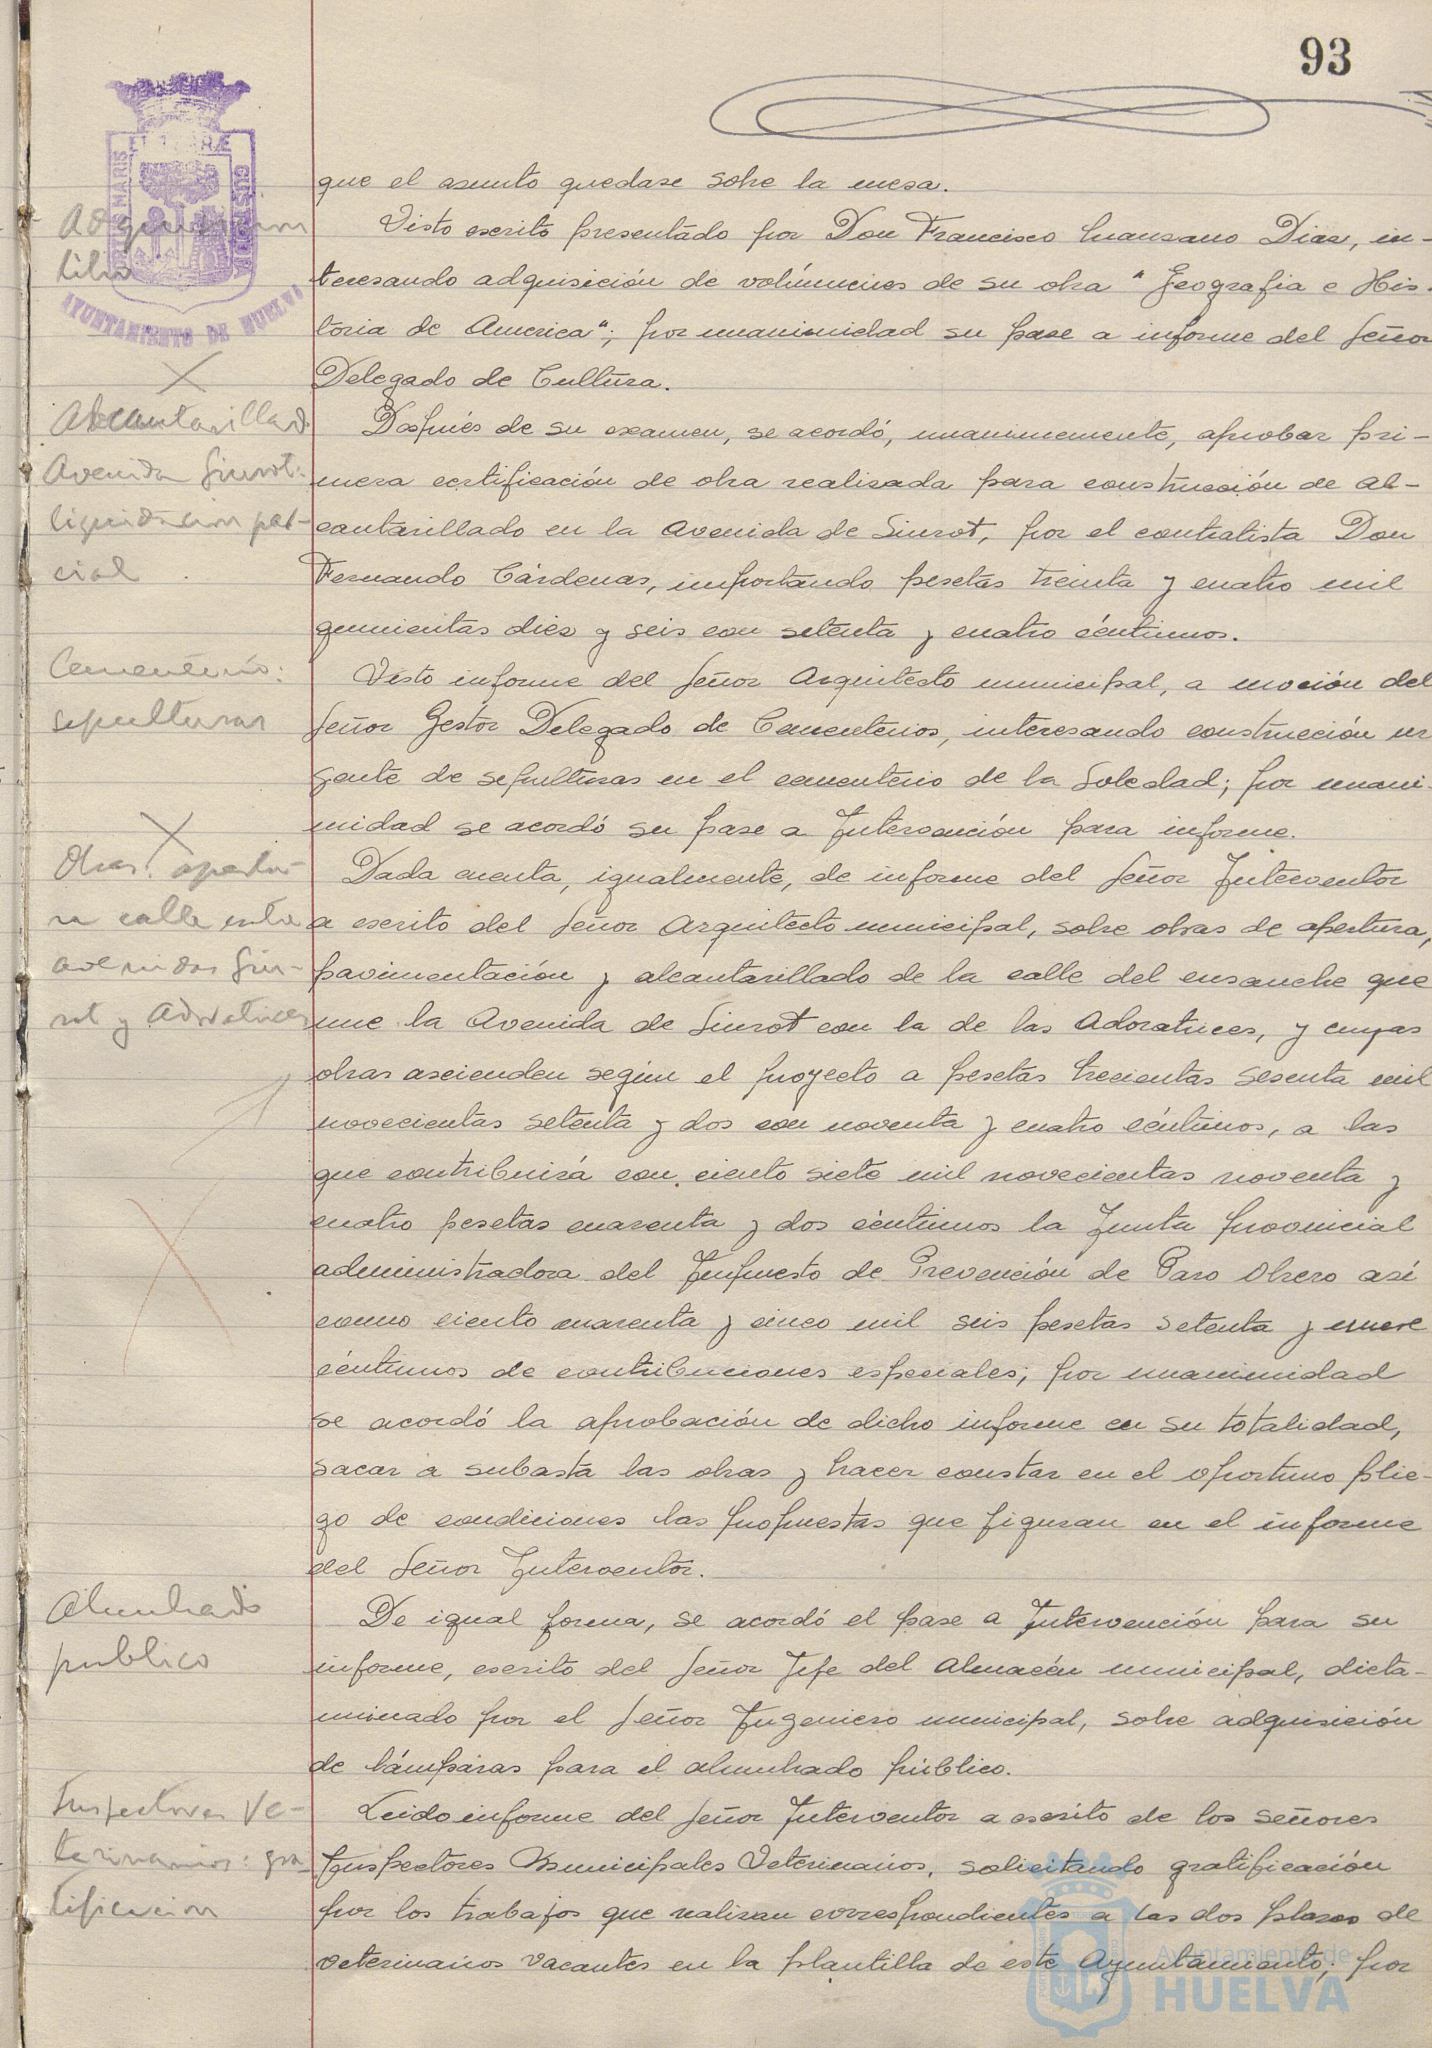 93
PORTUS MARIS ET TERRÆ CUSTODIA
AYUNTAMIENTO DE HUELVA
que el asunto quedase sobre la mesa.
Adquisicion
libro
Visto escrito presentado por Don Francisco Manzano Diaz, in-
teresando adquisición de volúmenes de su obra "Geografia e His-
toria de America"; por unanimidad su pase a informe del Señor
Delegado de Cultura.
Alcantarillado
Avenida Siurot:
liquidacion par-
cial
Después de su examen, se acordó, unanimemente, aprobar pri-
mera certificación de obra realizada para construcción de al-
cantarillado en la Avenida de Siurot, por el contratista Don
Fernando Cárdenas, importando pesetas treinta y cuatro mil
quinientas diez y seis con setenta y cuatro céntimos.
Cementerio:
sepulturas
Visto informe del Señor Arquitecto municipal, a moción del
Señor Gestor Delegado de Cementerios, interesando construcción ur
gente de sepulturas en el cementerio de la Soledad; por unani-
midad se acordó su pase a Intervención para informe.
Obras: apertu-
ra calle entre
avenidas Siu-
rot y Adoratrices
Dada cuenta, igualmente, de informe del Señor Interventor
a escrito del Señor Arquitecto municipal, sobre obras de apertura,
pavimentación y alcantarillado de la calle del ensanche que
une la Avenida de Siurot con la de las Adoratrices, y cuyas
obras ascienden según el proyecto a pesetas trecientas sesenta mil
novecientas setenta y dos con noventa y cuatro céntimos, a las
que contribuirá con ciento siete mil novecientas noventa y
cuatro pesetas cuarenta y dos céntimos la Junta provincial
administradora del Impuesto de Prevención de Paro Obrero asi
como ciento cuarenta y cinco mil seis pesetas setenta y nueve
céntimos de contribuciones especiales; por unanimidad
se acordó la aprobación de dicho informe en su totalidad,
sacar a subasta las obras y hacer constar en el oportuno plie-
go de condiciones las propuestas que figuran en el informe
del Señor Interventor.
Alumbrado
publico
De igual forma, se acordó el pase a Intervención para su
informe, escrito del Señor Jefe del Almacén municipal, dicta-
minado por el Señor Ingeniero municipal, sobre adquisición
de lámparas para el alumbrado público.
Inspectores Ve-
terinarios: gra-
tificacion
Leido informe del Señor Interventor a escrito de los señores
Inspectores Municipales Veterinarios, solicitando gratificación
por los trabajos que realizan correspondientes a las dos plazas de
veterinarios vacantes en la plantilla de este Ayuntamiento; por
Ayuntamiento de
HUELVA